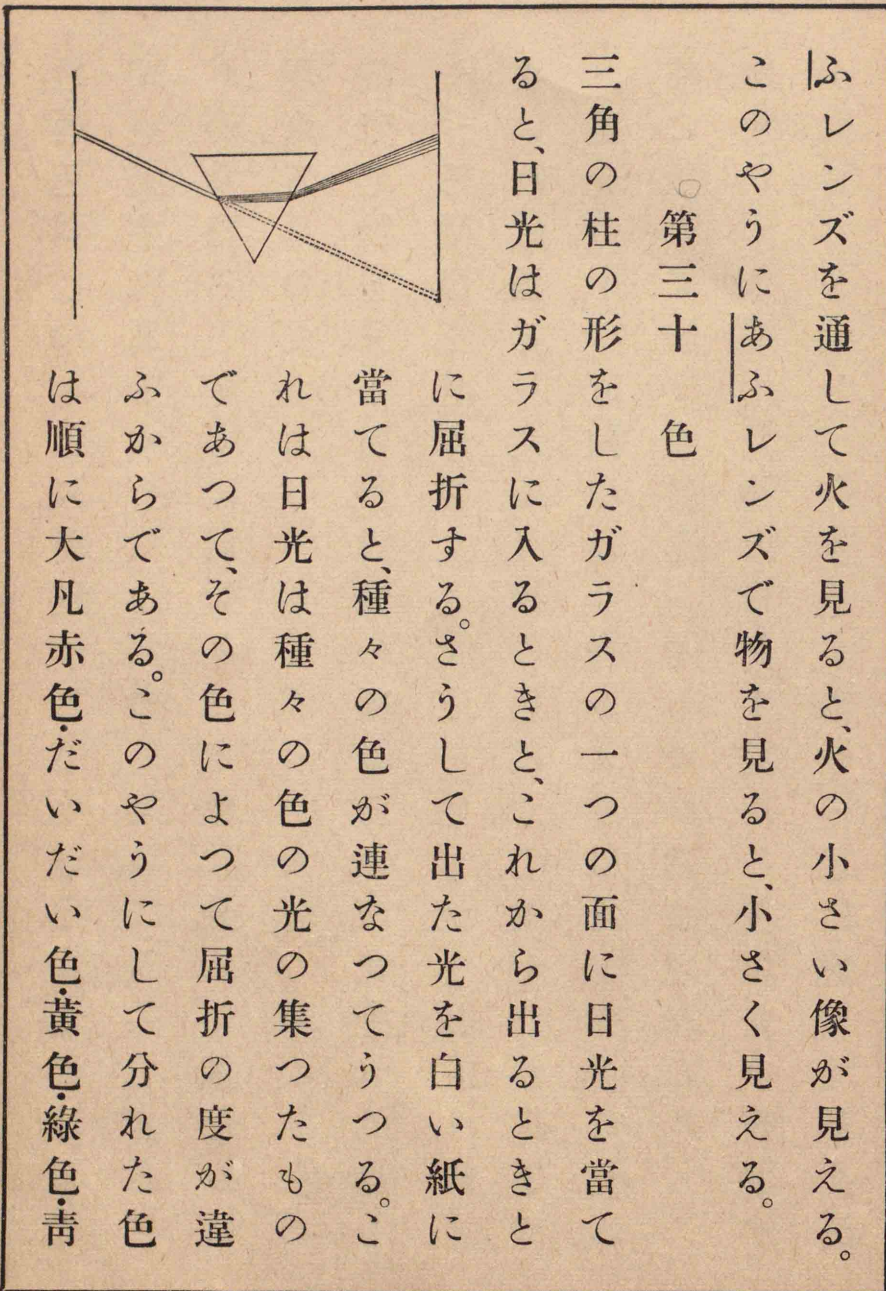 ふレンズを通して火を見ると、火の小さい像が見える。
このやうにあふレンズで物を見ると、小さく見える。
第三十 色
三角の柱の形をしたガラスの一つの面に日光を當て
ると、日光はガラスに入るときと、これから出るときと
に屈折する。さうして出た光を白い紙に
當てると、種々の色が連なつてうつる。こ
れは日光は種々の色の光の集つたもの
であつて、その色によつて屈折の度が違
ふからである。このやうにして分れた色
は順に大凡赤色・だいだい色・黃色・綠色・靑